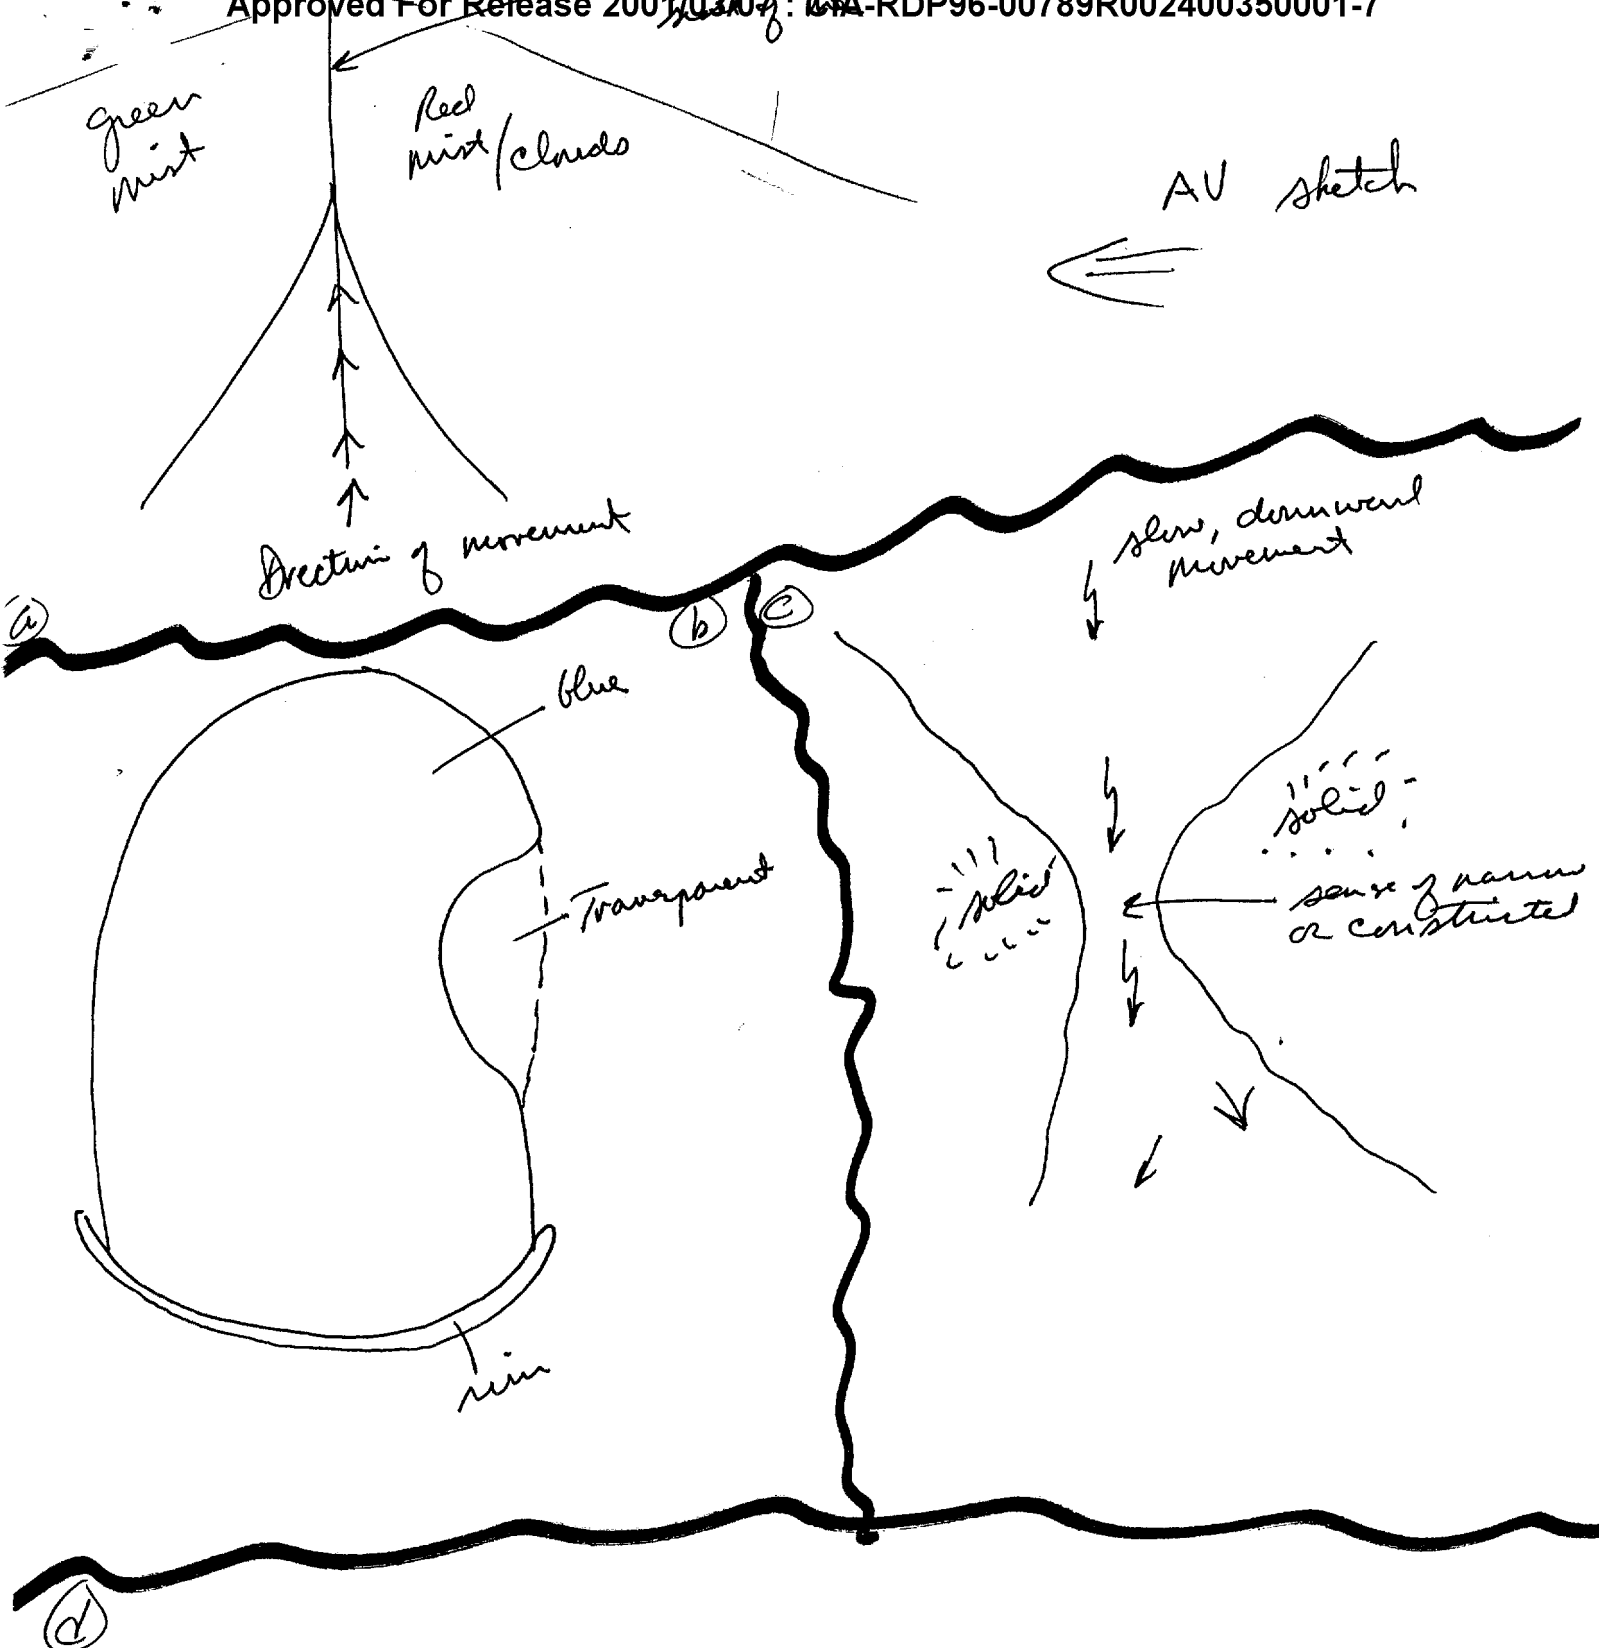 Approved For Release 2001/03/07 : CIA-RDP96-00789R002400350001-7
green
mist
Red
mist/clouds
AV sketch
Direction of movement
a
b
c
slow, downward
movement
blue
Transparent
solid
solid
sense of narrow
or constricted
rim
d